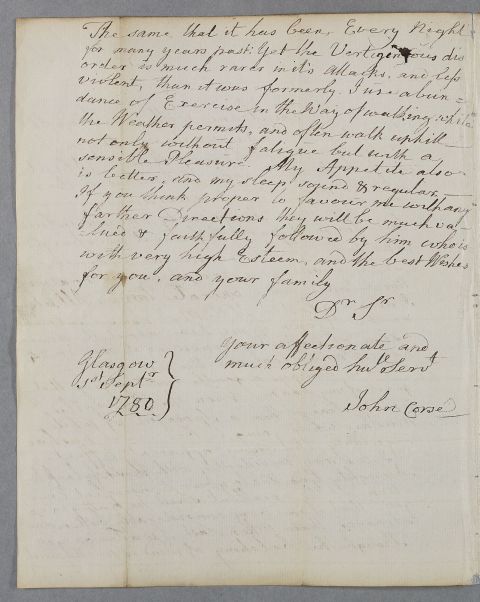 The same that it has been Every Night
for many years past: Yet the Vertiginous dis
order is much rarer in it's attacks, and less
violent, than it was formerly. I use abun =
dance of Exercise in the way of walking while
the Weather permits, and often walk uphill
not only without fatigue but with a
sensible Pleasure. My Appetite also
is better, and my sleep sound & regular.
If you think proper to favour me with any
farther Directions they will be much va-
lued & faithfully followed by him who is
with very high Esteem, and the best Wishes
for you, and your family
Dr Sr
Your affectionate and
much obliged hule Servt
Glasgow
1st Septr
1780
John Corse